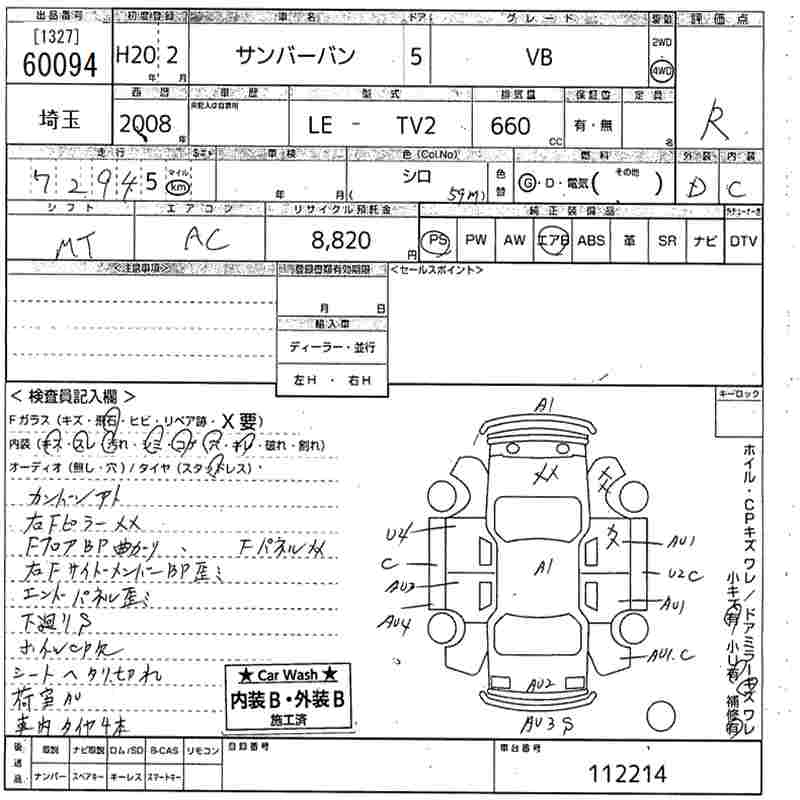 出品番号 初度登録 車名 ドア グレード 駆動 評価点
[1327]
60094 H20年 2月 サンバーバン 5 VB 2WD 4WD R
西暦 車歴 型式 排気量 保証書 定員
埼玉 2008年 LE - TV2 660cc 有・無 名
走行 車検 色(Col.No) 燃料 外装 内装
72945 マイル km 年 月 シロ 59M) 色替 G・D・電気( その他 ) D C
シフト エアコン リサイクル預託金 純正装備品
MT AC 8,820円 PS PW AW エアB ABS 革 SR ナビ DTV
<注意事項> 登録書類有効期限 <セールスポイント>
月 日
輸入車
ディーラー・並行
左H ・ 右H
<検査員記入欄> キーロック
Fガラス(キズ・飛石・ヒビ・リペア跡・X要)
内装(キズ・スレ・汚れ・シミ・コゲ・穴・キレ・破れ・割れ)
オーディオ(無し・穴)/タイヤ(スタッドレス)・
右Fピラー XX
FフロアBP曲 Fパネル XX
右FサイドメンバーBP歪ミ
エンドパネル歪ミ
下廻りS
ホイルCP欠
シートヘタリ切れ
荷室AU
車内タイヤ4本
A1
XX XX
U4 XX AU1
C A1 U2 C
AU3 AU1
AU4
AU1.C
AU2
AU3 S
ホイル・CPキズワレ/ドアミラーキズワレ
小キズ有 小U有 補修有
★ Car Wash ★
内装B・外装B
施工済
後送品 取説 ナビ取説 ロム/SD B-CAS リモコン 登録番号 車台番号
ナンバー スペアキー キーレス スマートキー 112214